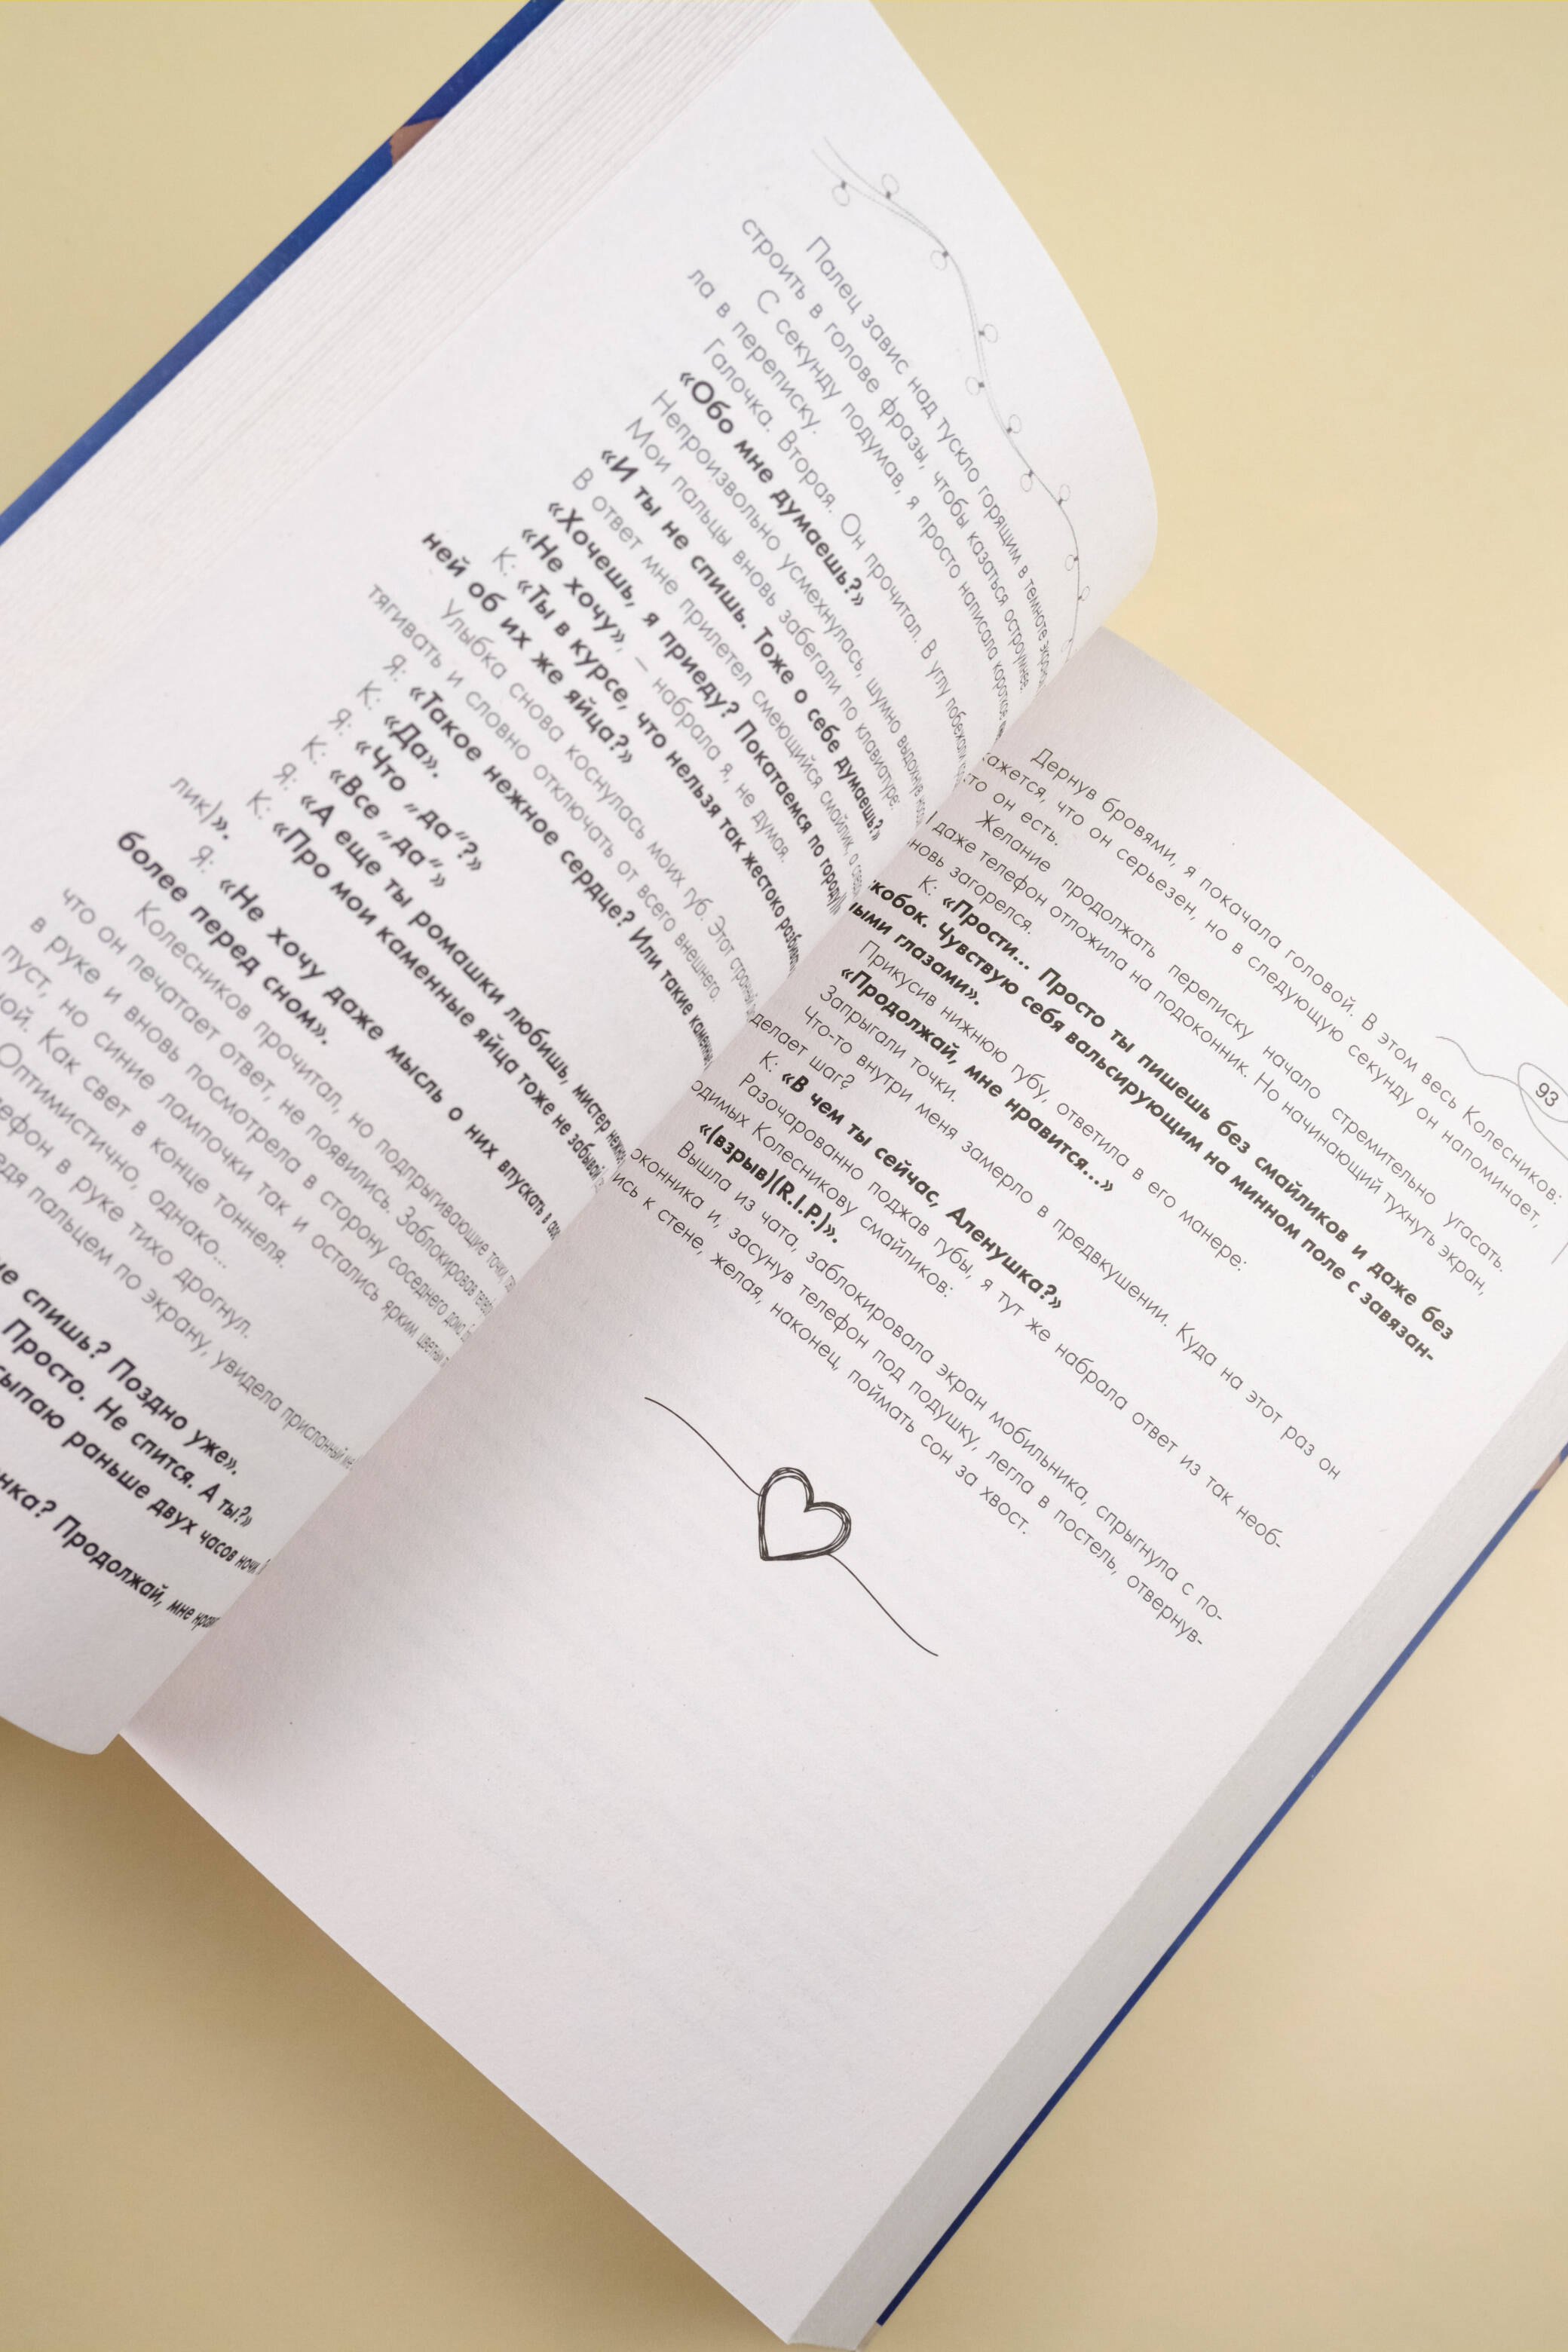 Палец завис над тускло горящим в темноте
строить в голове фразы, чтобы казаться остроумнее.
С секунду подумав, я просто написала короткое
ла в переписку.
Галочка. Вторая. Он прочитал. В углу
«Обо мне думаешь?»
Непроизвольно усмехнулась, шумно выдохнув
Мои пальцы вновь забегали по клавиатуре:
«И ты не спишь. Тоже о себе думаешь?»
В ответ мне прилетел смеющийся смайлик, а
«Хочешь, я приеду? Покатаемся по городу
«Не хочу», — набрала я, не думая.
К: «Ты в курсе, что нельзя так жестоко
ней об их же яйца?»
Улыбка снова коснулась моих губ. Этот
тягивать и словно отключать от всего внешнего.
Я: «Такое нежное сердце? Или такие
К: «Да».
Я: «Что „да“?»
К: «Все „да“»
Я: «А еще ты ромашки любишь, мистер
К: «Про мои каменные яйца тоже не забывай
лик)».
Я: «Не хочу даже мысль о них впускать в
более перед сном».
Колесников прочитал, но подпрыгивающие точки,
что он печатает ответ, не появились. Заблокировав
в руке и вновь посмотрела в сторону соседнего дома,
пуст, но синие лампочки так и остались ярким
Как свет в конце тоннеля.
Оптимистично, однако...
в руке тихо дрогнул.
пальцем по экрану, увидела присланный
спишь? Поздно уже».
Просто. Не спится. А ты?»
раньше двух часов ночи
Продолжай, мне
93
Дернув бровями, я покачала головой. В этом весь Колесников:
что он серьезен, но в следующую секунду он напоминает,
он есть.
Желание продолжать переписку начало стремительно угасать.
даже телефон отложила на подоконник. Но начинающий тухнуть экран,
загорелся.
К: «Прости... Просто ты пишешь без смайликов и даже без
Чувствую себя вальсирующим на минном поле с завязан-
глазами».
Прикусив нижнюю губу, ответила в его манере:
«Продолжай, мне нравится...»
Запрыгали точки.
Что-то внутри меня замерло в предвкушении. Куда на этот раз он
делает шаг?
К: «В чем ты сейчас, Аленушка?»
Разочарованно поджав губы, я тут же набрала ответ из так необ-
Колесникову смайликов:
«(взрыв)(R.I.P.)».
Вышла из чата, заблокировала экран мобильника, спрыгнула с по-
и, засунув телефон под подушку, легла в постель, отвернув-
к стене, желая, наконец, поймать сон за хвост.